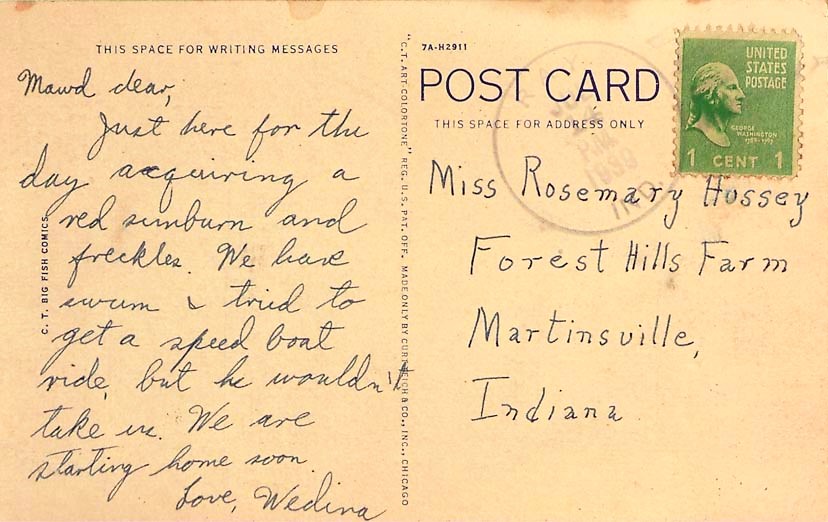 THIS SPACE FOR WRITING MESSAGES
Mawd dear,
Just here for the
day acquiring a
red sunburn and
freckles. We have
swum & tried to
get a speed boat
ride, but he wouldn't
take us. We are
starting home soon.
Love, Wedina
C. T. BIG FISH COMICS
"C.T. ART-COLORTONE" REG. U.S. PAT. OFF. MADE ONLY BY CURT TEICH & CO., INC., CHICAGO
7A-H2911
POST CARD
THIS SPACE FOR ADDRESS ONLY
UNITED
STATES
POSTAGE
GEORGE
WASHINGTON
1789-1797
1 CENT 1
IND.
Miss Rosemary Hussey
Forest Hills Farm
Martinsville,
Indiana